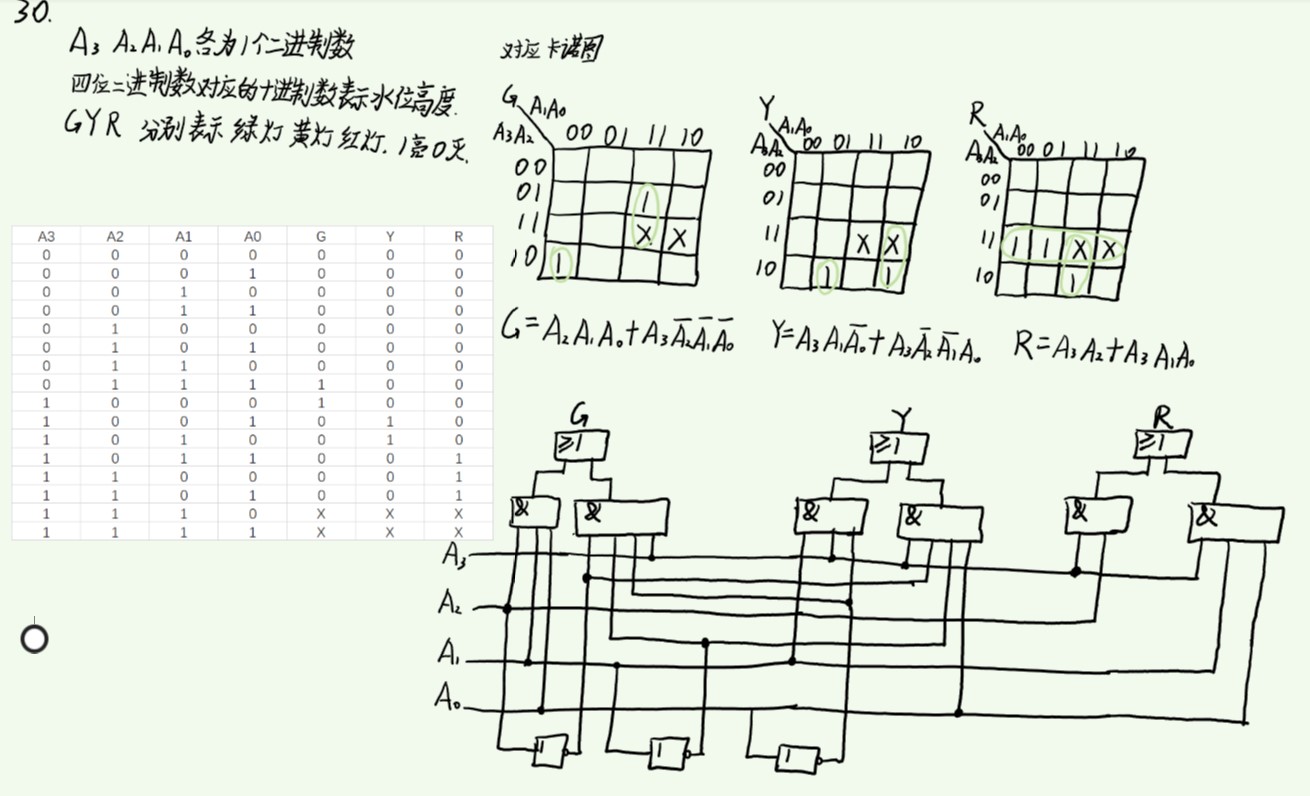 30.
A₃ A₂ A₁ A₀各为1个二进制数
四位二进制数对应的十进制数表示水位高度.
GYR 分别表示绿灯黄灯红灯. 1亮0灭.
A3 A2 A1 A0 G Y R
0 0 0 0 0 0 0
0 0 0 1 0 0 0
0 0 1 0 0 0 0
0 0 1 1 0 0 0
0 1 0 0 0 0 0
0 1 0 1 0 0 0
0 1 1 0 0 0 0
0 1 1 1 1 0 0
1 0 0 0 1 0 0
1 0 0 1 0 1 0
1 0 1 0 0 1 0
1 0 1 1 0 0 1
1 1 0 0 0 0 1
1 1 0 1 0 0 1
1 1 1 0 X X X
1 1 1 1 X X X
对应卡诺图
G A₁A₀
A₃A₂ 00 01 11 10
00
01 1
11 X X
10 1
Y A₁A₀
A₃A₂ 00 01 11 10
00
01
11 X X
10 1 1
R A₁A₀
A₃A₂ 00 01 11 10
00
01
11 1 1 X X
10 1
G=A₂A₁A₀+A₃A̅₂A̅₁A̅₀ Y=A₃A₁A̅₀+A₃A̅₂A̅₁A₀ R=A₃A₂+A₃A₁A₀
G Y R
≥1 ≥1 ≥1
& & & & & &
A₃
A₂
A₁
A₀
1 1 1